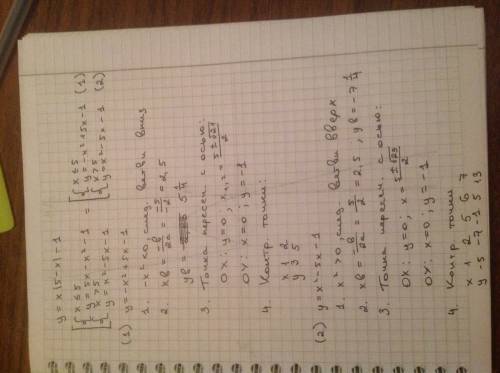 y = x|5-x| - 1
[ { x ≤ 5 y = 5x - x² - x - 1 { x > 5 y = x² - 5x - 1 = [ { x ≤ 5 y = -x² + 5x - 1 (1) { x > 5 y = x² - 5x - 1 (2)
(1) y = -x² + 5x - 1
1. -x² < 0, след. ветви вниз
2. xв = -в/2a = -5/-2 = 2,5
yв = 5 1/4
3. Точка пересеч. с осью:
OX: y=0, x₁,₂ = (5 ± √21)/2
OY: x=0; y=-1
4. Контр. точки:
x 1 2
y 3 5
(2) y = x² - 5x - 1
1. x² > 0 след. ветви вверх
2. xв = -в/2a = 5/2 = 2,5, yв = -7 1/4
3. Точка пересеч. с осью:
OX: y=0; x = (5 ± √29)/2
OY: x=0; y=-1
4. Контр. точки
x 1 2 5 6 7
y -5 -7 -1 5 13